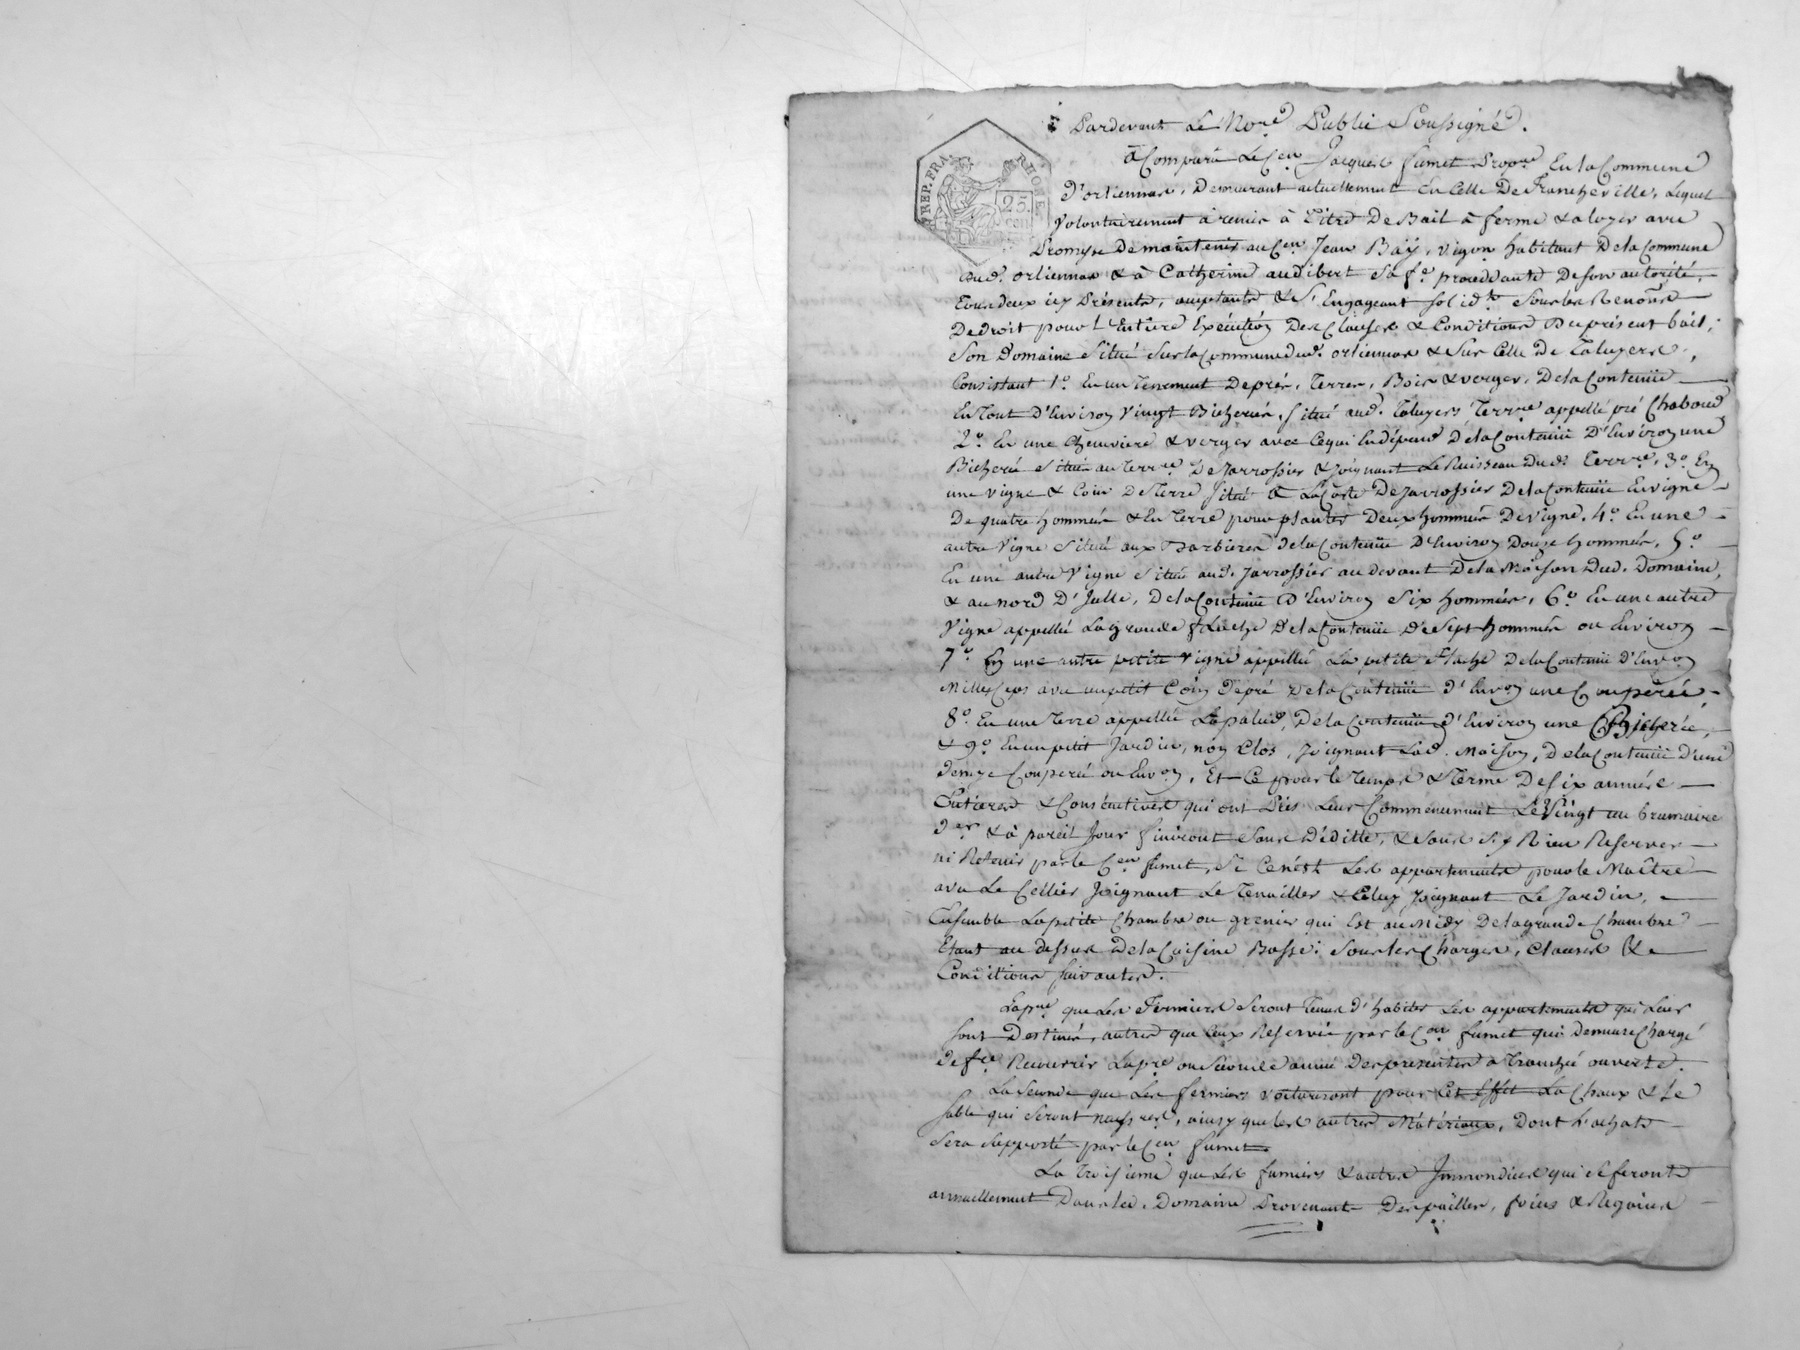 REP. FRA RHONE
25 cen
Pardevant Le No.re Public Soussigné.
a Comparu Le C.en Jacques fumet Prop.re En la Commune
d'orliennas, Demeurant actuellement En Celle De francheville, Lequel
volontairement à remis à Titre De Bail à ferme & a loyer avec
Promesse De maintenir au C.en Jean Baÿ, vigon habitant De la Commune
dud. orliennas & à Catherine audibert Sa f.e procédante De son autorité,
Tous deux icy Présents, acceptants & S'Engageant solid.te Sous les Renons
De droit pour L'Entiere Exécution Des Clauses & Conditions Du présent bail,
Son Domaine Situé Sur la Commune dud. orliennas & Sur Celle De Taluyers,
Consistant 1.o En un Tenement De prés, Terres, Bois & verger, De la Contenüe
En Tout D'Environ Vingt Bicherées, Situé aud. Taluyers Terr.re appellé pré Chaboud
2.o En une Chenviere & verger avec Ce qui En dépend De la Contenüe D'Environ une
Bicherée Située au Terr.re De Jarrossier & Joignant Le Ruisseau dud. Terr.re, 3.o En
une vigne & Coin De Terre Situé à La Coste De Jarrossier De la Contenüe En vigne
De quatre hommées & En Terre pour planter Deux hommées De vigne. 4.o En une
autre Vigne Située aux Barbieres De la Contenüe D'Environ Douze hommées, 5.o
En une autre Vigne Située aud. Jarrossier au devant De la Maison Dud. Domaine,
& au nord D'Icelle, De la Contenüe D'Environ Six hommées, 6.o En une autre
Vigne appellée La Grande flache De la Contenüe De Sept hommées ou Environ
7.o En une autre petite Vigne appellée La petite flache De la Contenüe d'Env.on
Mille Ceps avec un petit Coin De pré De la Contenüe d'Env.on une Couperée,
8.o En une Terre appellée La palud, De la Contenüe d'Environ une Bicherée,
& 9.o En un petit Jardin, non Clos, Joignant Lad. Maison, De la Contenüe D'une
demye Couperée ou Env.on, Et Ce pour le Temps & Terme De Six années
Entieres & Consécutives qui ont Pris Leur Commencement Le Vingt un brumaire
d.er & à pareil Jour finiront Sans Déditte, & Sans S'y Rien Reserver
ni Retenir par le C.en fumet, Si Ce n'est Les appartements pour le Maître
avec Le Cellier Joignant Le Tenailler & Celuy Joignant Le Jardin,
Ensemble La petite Chambre ou grenier qui Est au Midy De la grande Chambre
Etant au dessus De la Cuisine Basse: Sous les Charges, Clauses &
Conditions suivantes.
La p.re que Les Fermiers Seront Tenus d'habiter Les appartements qui Leur
sont Destinés, autres que Ceux Réservés par le C.en fumet qui Demeure Chargé
De f.re Recouvrir La p.re ou Seconde année Des présentes à Tranchée ouverte.
La Seconde que Les fermiers voitureront pour Cet Effet La Chaux & Le
Sable qui Seront necss.res, ainsy que les autres Matériaux, Dont L'achat
Sera Supporté par le C.en fumet.
La Troisieme que Les fumiers & autres Immondices qui Se feront
annuellement Dans led. Domaine Provenant Des pailles, foins & Regains